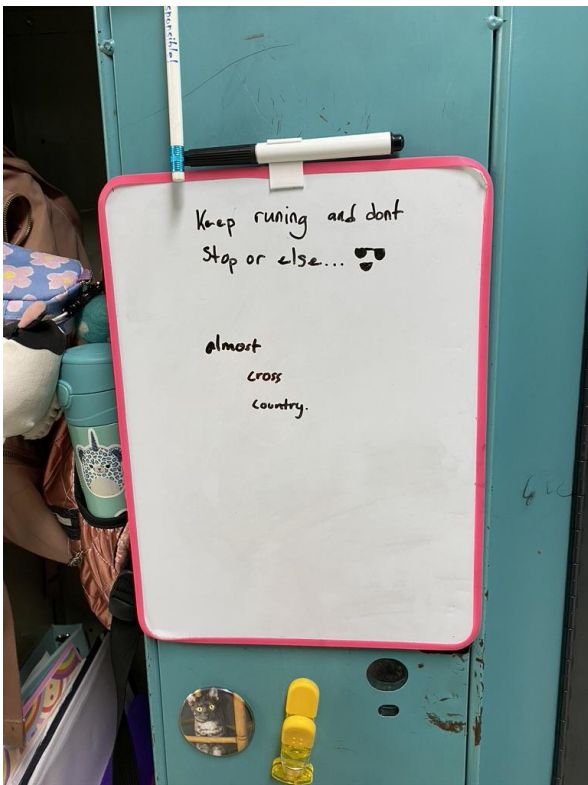 sponsible!
Keep runing and dont
Stop or else...
almost
cross
country.